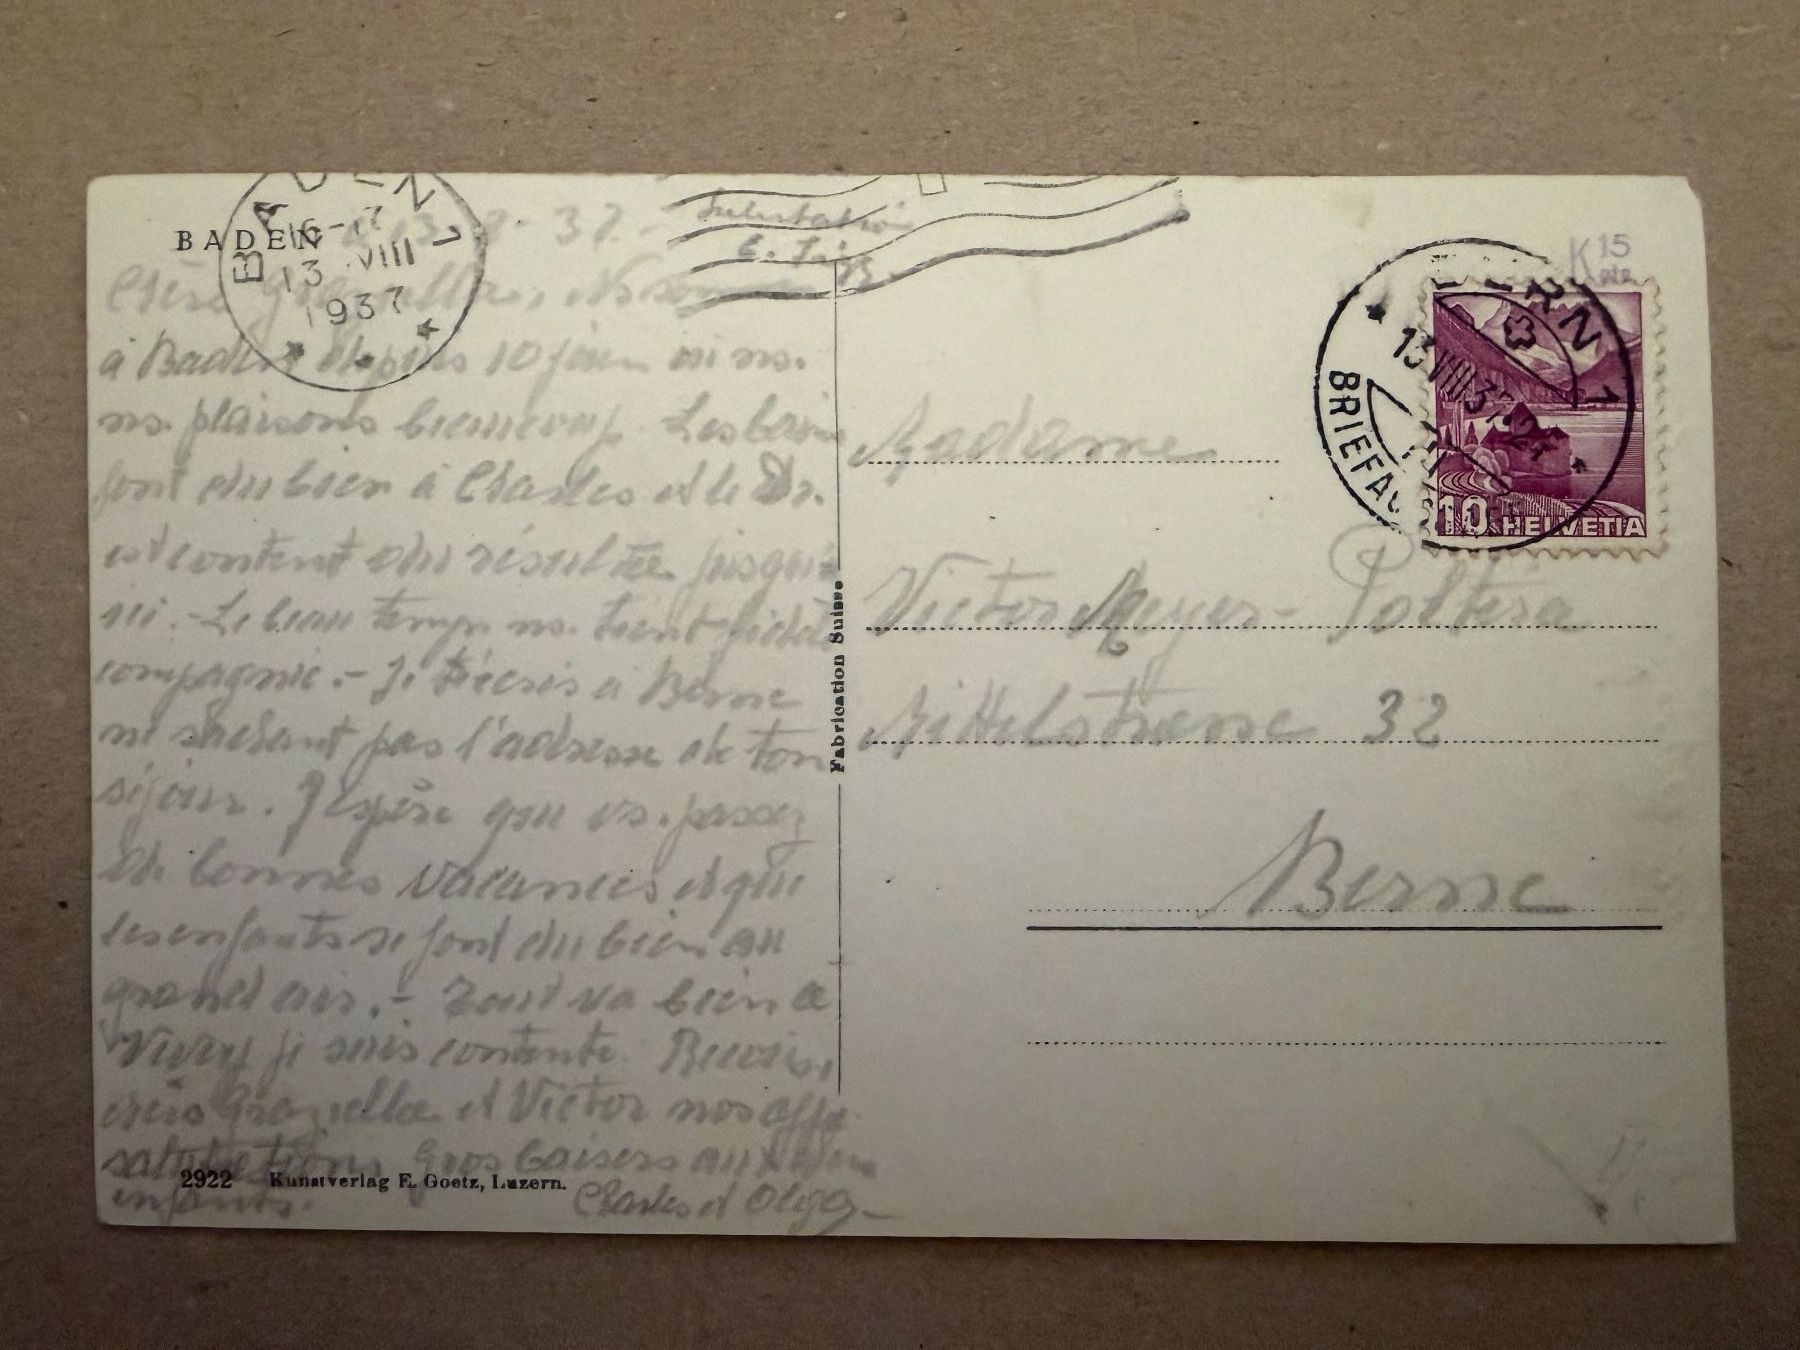 BADEN 1
16-17
13.VIII
1937
BADEN 13.8.37.
Chère Graziella, Ns sommes
à Baden depuis 10 jours où ns.
ns. plaisons beaucoup. Les bains
font du bien à Charles et le Dr.
est content du résultat jusqu'
ici. - Le beau temps ns. tient fidèle
compagnie. - Je t'écris à Berne
ne sachant pas l'adresse de ton
séjour. J'espère que vs. passez
de bonnes vacances et que
les enfants se font du bien au
grand air. - Tout va bien à
Vivey je suis contente. Recevez,
chers Graziella et Victor nos aff.
salutations. Gros baisers aux
enfants. Charles et Olga -
2922 Kunstverlag E. Goetz, Luzern.
Fabrication Suisse
K 15
BERN 1
13.VIII.37
BRIEFAUFG
10 HELVETIA
Madame
Victor Meyer-Poltera
Mittelstrasse 32
Berne